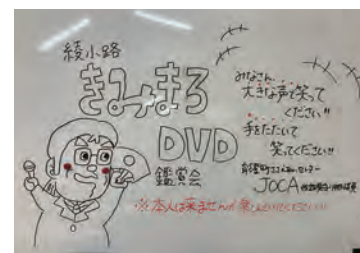 綾小路
きみまろ
DVD
鑑賞会
みなさん
大きな声で笑って
ください!!
手をたたいて
笑ってください!!
JOCA
※本人は来ませんが楽しんでください!!